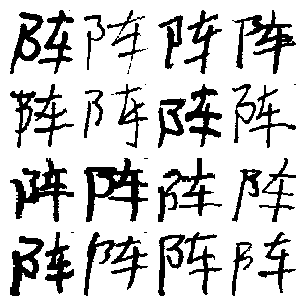 阵阵阵阵
阵阵阵阵
阵阵阵阵
阵阵阵阵